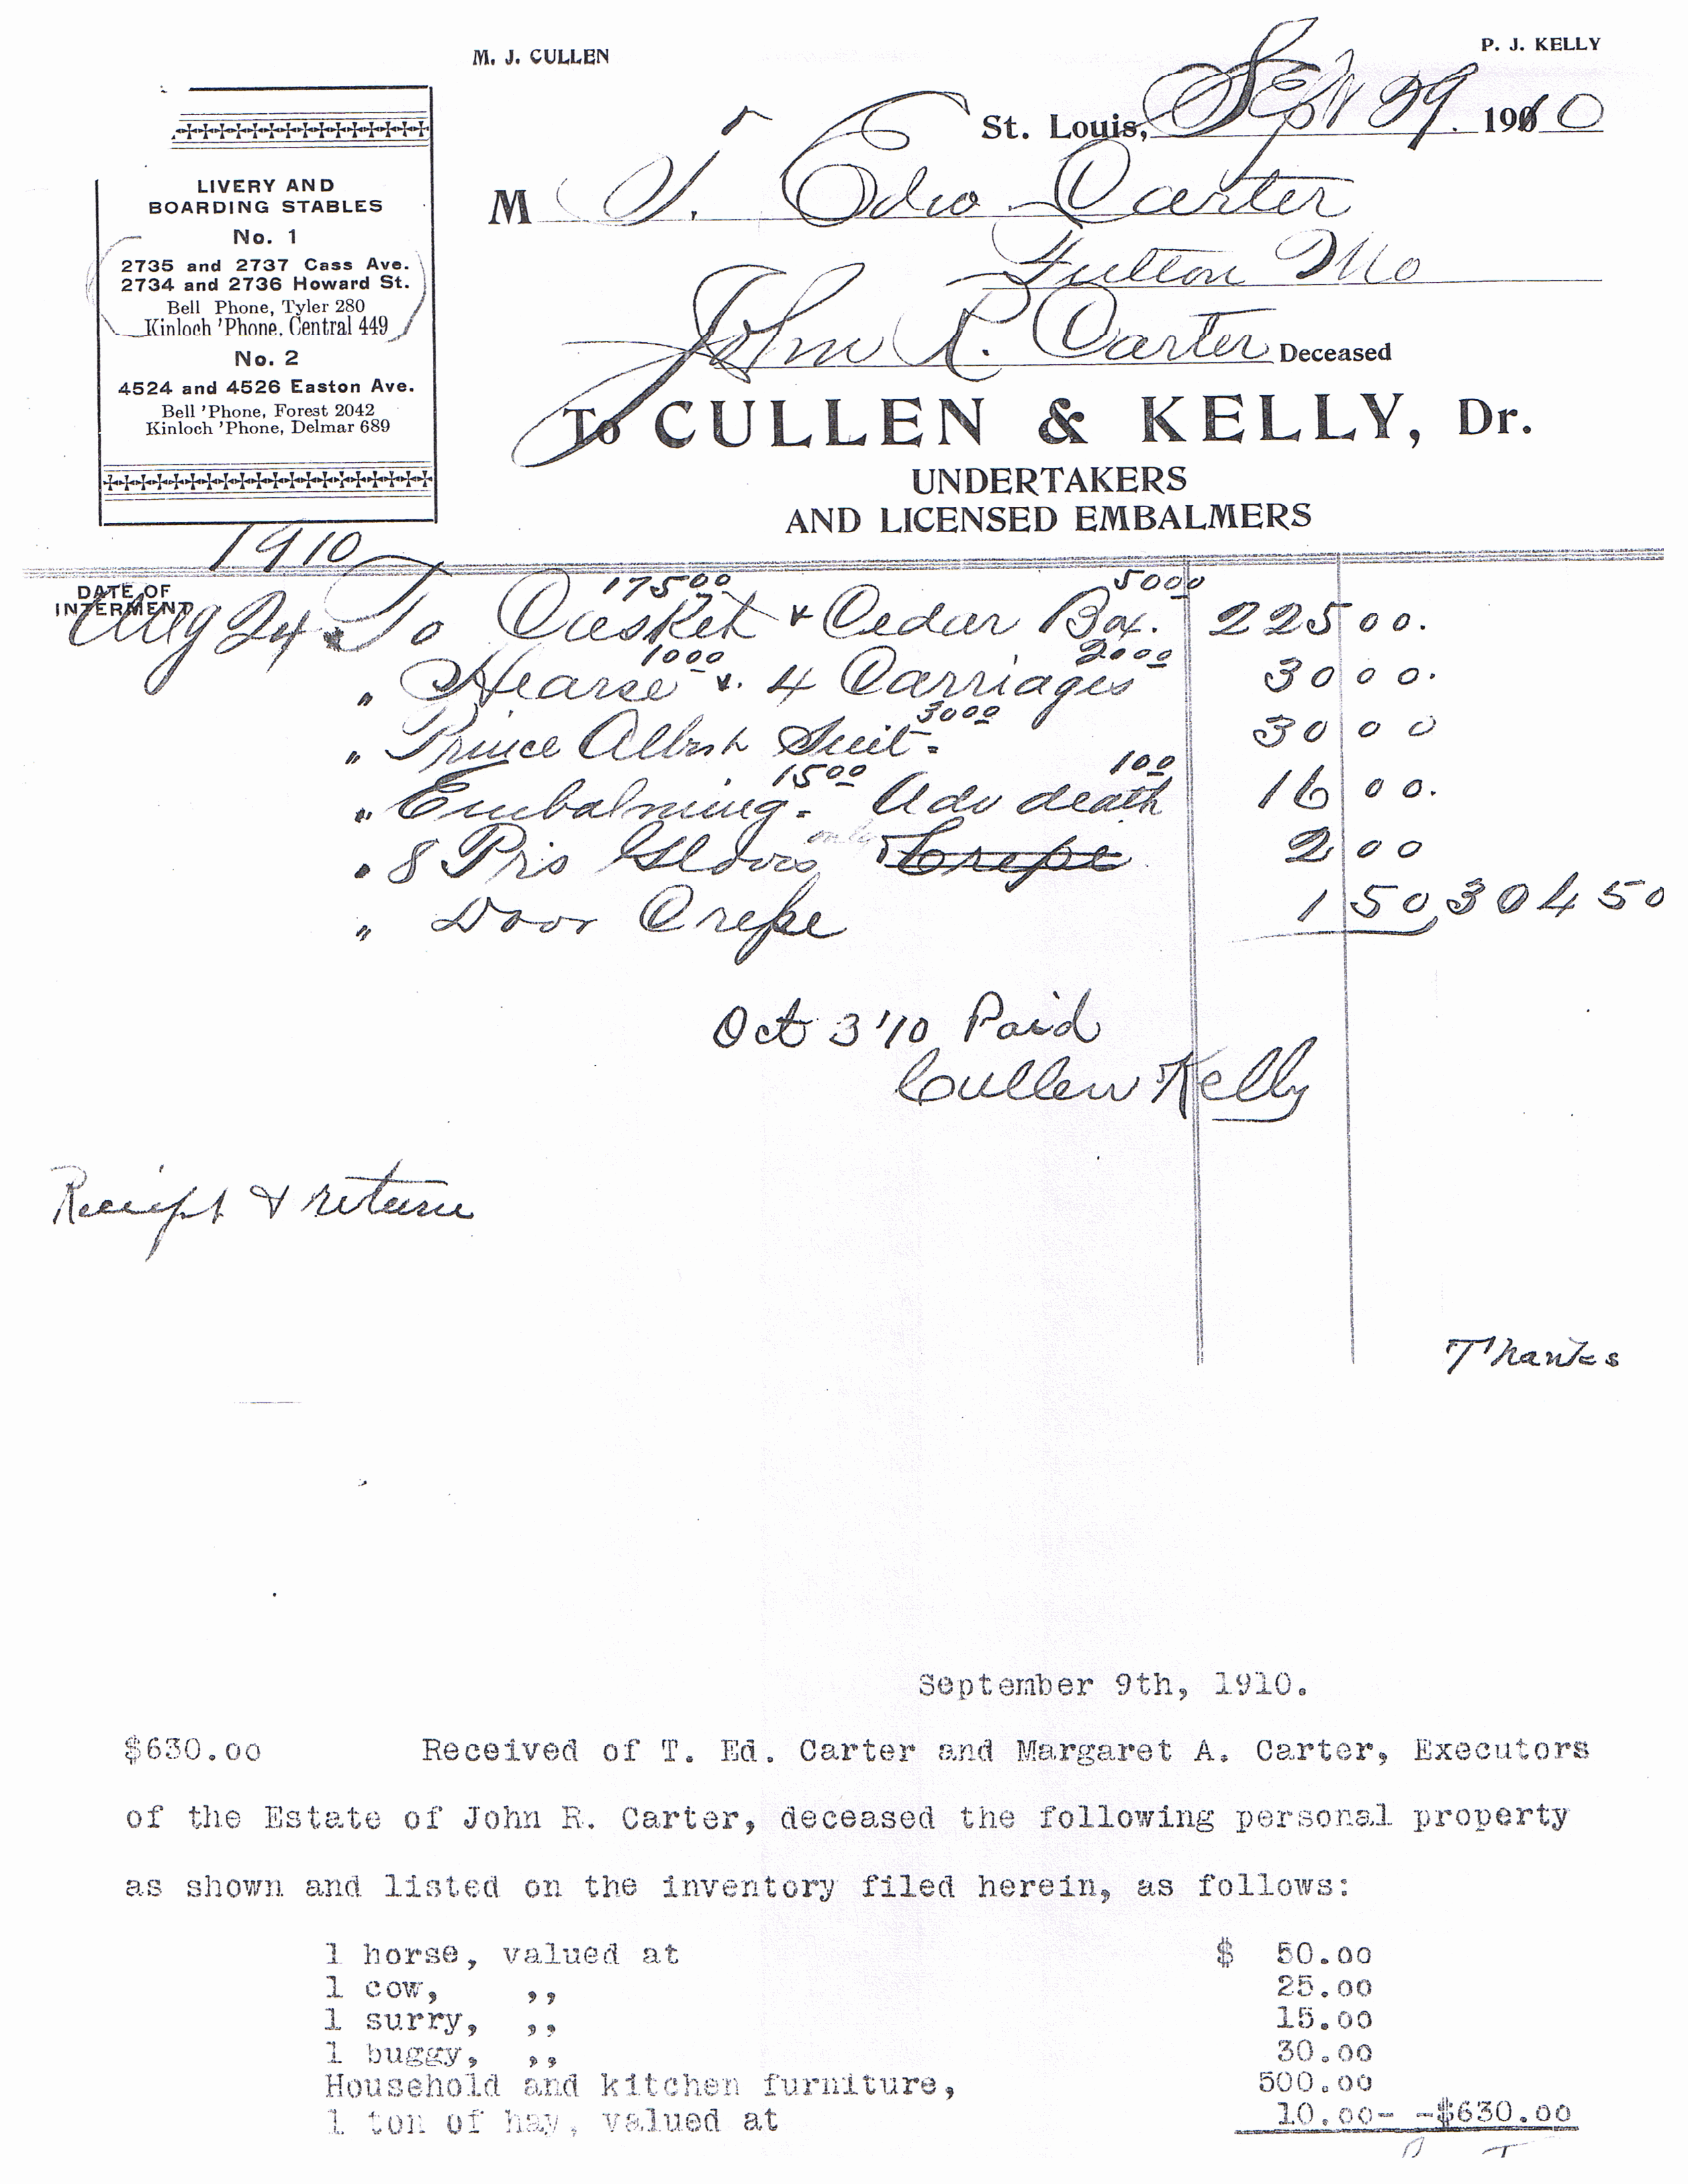 M. J. CULLEN
P. J. KELLY
St. Louis, Sept 29. 1910
M T. Edw Carter
Fulton Mo
John R. Carter Deceased
To CULLEN & KELLY, Dr.
UNDERTAKERS
AND LICENSED EMBALMERS
LIVERY AND
BOARDING STABLES
No. 1
2735 and 2737 Cass Ave.
2734 and 2736 Howard St.
Bell Phone, Tyler 280
Kinloch 'Phone, Central 449
No. 2
4524 and 4526 Easton Ave.
Bell 'Phone, Forest 2042
Kinloch 'Phone, Delmar 689
1910
DATE OF
INTERMENT
175 00 50 00
Aug 24 To Casket & Cedar Box. 225 00.
10 00 20 00
" Hearse & 4 Carriages 30 00.
30 00
" Prince Albert Suit. 30 00
15 00 1 00
" Embalming. Adv death 16 00.
" 8 Prs Gloves only Crepe 2 00
" Door Crepe 1 50 304 50
Oct 3 '10 Paid
Cullen Kelly
Receipt & return
Thanks
September 9th, 1910.
$630.oo Received of T. Ed. Carter and Margaret A. Carter, Executors
of the Estate of John R. Carter, deceased the following personal property
as shown and listed on the inventory filed herein, as follows:
1 horse, valued at $ 50.oo
1 cow, ,, 25.oo
1 surry, ,, 15.oo
1 buggy, ,, 30.oo
Household and kitchen furniture, 500.oo
1 ton of hay, valued at 10.oo- -$630.oo